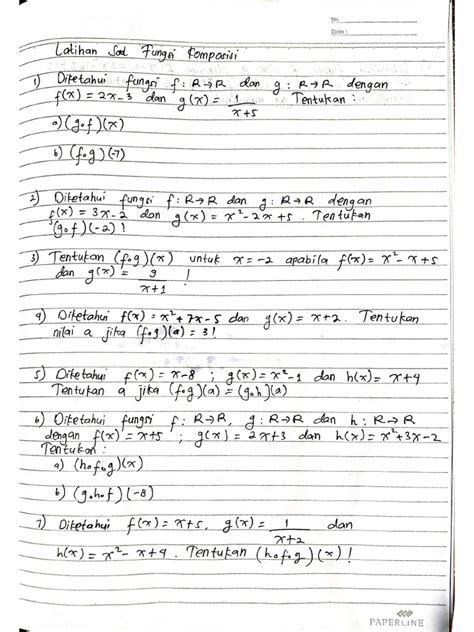 No.
Date :
Latihan Soal Fungsi Komposisi
1) Diketahui fungsi f : R→R dan g : R→R dengan
f(x) = 2x-3 dan g(x) = 1/(x+5) Tentukan :
a) (g∘f)(x)
b) (f∘g)(-7)
2) Diketahui fungsi f : R→R dan g : R→R dengan
f(x) = 3x-2 dan g(x) = x²-2x+5. Tentukan
(g∘f)(-2) !
3) Tentukan (f∘g)(x) untuk x = -2 apabila f(x) = x²-x+5
dan g(x) = 9/(x+1) !
4) Diketahui f(x) = x²+7x-5 dan g(x) = x+2. Tentukan
nilai a jika (f∘g)(a) = 3!
5) Diketahui f(x) = x-8 ; g(x) = x²-1 dan h(x) = x+4
Tentukan a jika (f∘g)(a) = (g∘h)(a)
6) Diketahui fungsi f : R→R, g : R→R dan h : R→R
dengan f(x) = x+5 ; g(x) = 2x+3 dan h(x) = x²+3x-2
Tentukan :
a) (h∘f∘g)(x)
b) (g∘h∘f)(-8)
7) Diketahui f(x) = x+5, g(x) = 1/(x+2) dan
h(x) = x²-x+4. Tentukan (h∘f∘g)(x) !
PAPERLINE